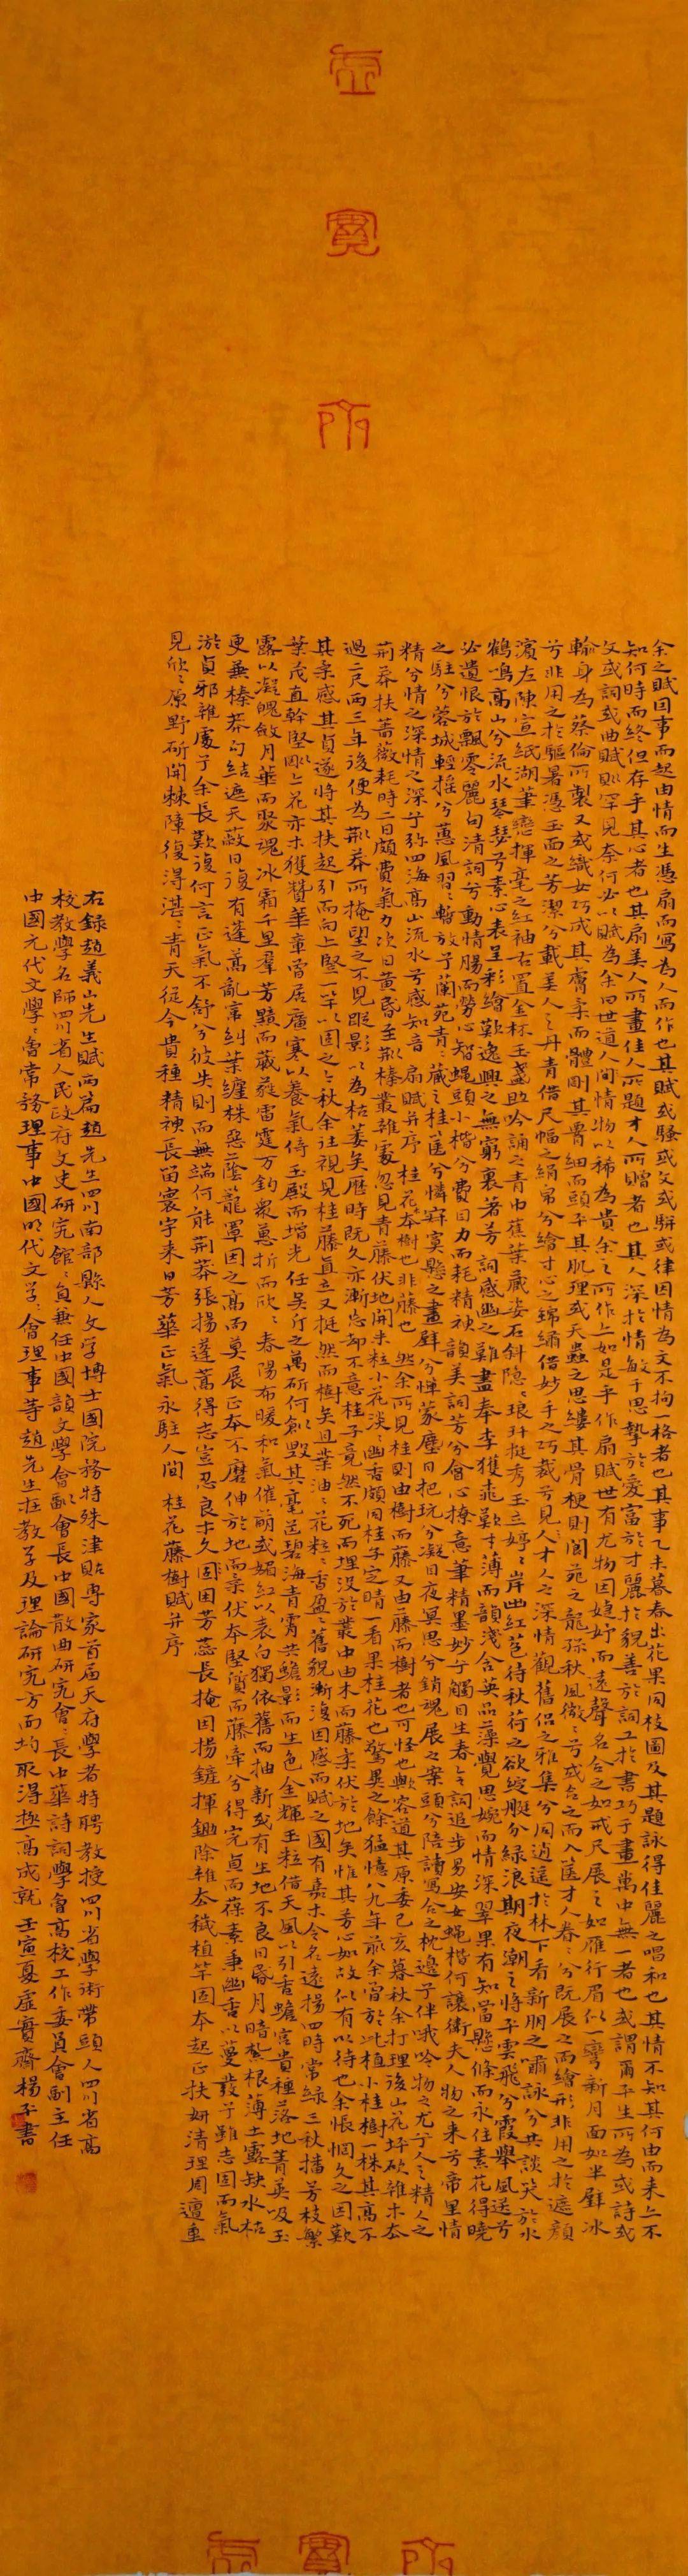 虛
實
所
余之賦因事而起由情而生憑扇而寫為人而作也其賦或騷或文或駢或律因情為文不拘一格者也其事乙未暮春出花果同枝圖及其題詠得佳麗之唱和也其情不知其何由而来亦不
知何時而終但存乎其心者也其扇美人所畫佳人所題才人所贈者也其人深於情敏于思摯於愛富於才麗於貌善於詞工於書巧于畫萬中無一者也或謂爾平生所為或詩或
文或詞或曲賦則罕見奈何必以賦為余曰世道人間情物以稀為貴余之所作亦如是乎作扇賦世有尤物因婕妤而遠聲名合之如戒尺展之如雁行眉似一彎新月面如半璧冰
輪身為蔡倫所製又或織女巧成其膚柔而體剛其骨細而頭平其肌理或天蟲之思縷其骨梗則閬苑之龍孫秋風微微兮或合之而入匣才人眷眷兮既展之而繪形非用之於遮顏
兮非用之於驅暑憑玉面之芳潔兮載美人之丹青借尺幅之絹帛兮繪寸心之錦繡借妙手之巧裁兮見才人之深情觀舊侶之雅集兮同逍遥於林下看新朋之嘯詠兮共談笑於水
濱左陳宣紙湖筆戀揮毫之红袖右置金杯玉盞助吟誦之青巾蕉葉藏姿石斜隱隱琅玕挺秀玉立婷婷岸幽红苞待秋荷之欲綻艇分緑浪期夜潮之將平雲飛兮霞舉風送兮
鶴鳴高山兮流水琴瑟兮素心表呈彩繪歎逸興之無窮裏著芳詞感幽之難盡奉李獲乖歎才薄而韻淺含英品藻覺思婉而情深翠果有知當懸條而永住素花得曉
必遺恨於飄零麗句清詞兮動情腸而勞心智蝇頭小楷兮費目力而耗精神韻美詞芳兮會心撩意筆精墨妙兮觸目生春令詞追步易安女蝇楷何讓衛夫人物之来兮帝里情
之駐兮蓉城輕摇兮蕙風習習暫放子蘭苑青青藏之桂匣兮憐寂寞懸之畫壁兮憚蒙塵日把玩兮凝目夜冥思兮銷魂展之案頭兮陪讀寫合之枕邊子伴哦吟物之尤兮人之精人之
精兮情之深情之深兮弥四海高山流水兮感知音扇賦并序桂花本樹也非藤也然余所見桂則由樹而藤又由藤而樹者也可怪也歟容道其原委己亥暮秋余打理後山花坪砍雜木去
荆莽扶薔薇耗時二日頗費氣力次日黄昏至荆榛叢雜處忽見青藤伏地開米粒小花淡淡幽香頗同桂子定睛一看果桂花也驚異之餘猛憶八九年前余嘗於此植小桂樹一株其高不
過二尺两三年後便為荆莽所掩望之不見蹤影以為枯萎矣歷時既久亦漸忘却不意桂子竟然不死而埋没於叢中由木而藤柔伏於地矣惟其芳心如故似有以待也余悵惘久之因歎
其柔感其貞遂將其扶起引而向上竪一竿以固之今秋余往視見桂藤真立又挺然而樹矣且葉油油花粒粒香盈盈舊貌漸復因感而賦之國有嘉木令名遠揚四時常绿三秋播芳枝繁
葉茂直幹堅剛上花亦木獲贊華章曾居廣寒以養氣倚玉殿而增光任吴斤之萬斫何創毁其毫芒碧海青霄共蟾影而生色金輝玉粒借天風以引香蟾宫貴種落地菁英吸玉
露以凝魄斂月華而聚魂冰霜千里羣芳黯而葳蕤雷霆万鈞衆蔥折而欣欣春陽布暖和氣催萌或媚红以表白獨依舊而抽新或有生地不良日昏月暗紮根薄土露缺水枯
更兼榛莽勾結遮天蔽日復有蓬蒿亂常糾葉纏株惡蔭籠罩因之高而莫展正本不磨伸於地而柔伏本堅質而藤幸兮得完貞而葆素秉幽香以蔓發乎雖志固而氣
淤貞邪雜處予余長歎復何言正氣不舒兮彼失則而無端何能荆莽張揚蓬蒿得志豈忍良才久困困芳蕊長掩因揚鏟揮鋤除雜去穢植竿固本起正扶妍清理周遭重
見欣欣原野斫開棘障復得湛湛青天從今貴種精神長留寰宇来日芳華正氣永駐人間 桂花藤樹賦并序
右録趙義山先生賦两篇趙先生四川南部縣人文学博士國院務特殊津貼專家首届天府學者特聘教授四川省學術帶頭人四川省高
校教學名師四川省人民政府文史研究館館員兼任中國韻文學會副會長中國散曲研究會會長中華詩詞學會高校工作委員會副主任
中國元代文學學會常務理事中國明代文学學會理事等趙先生在教学及理論研究方面均取得極高成就 壬寅夏虛實齋楊子書
虛實所